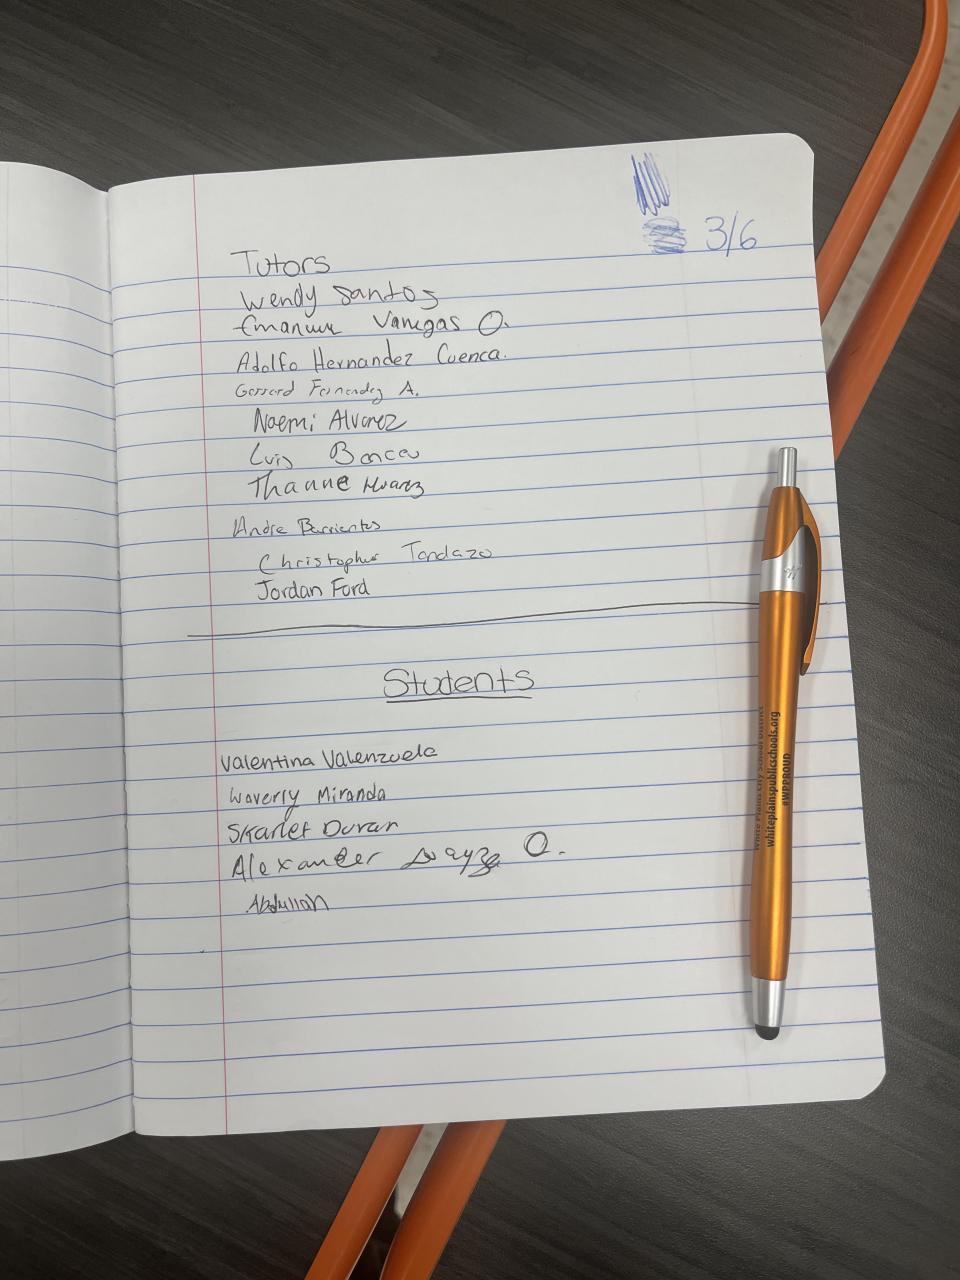 3/6
Tutors
Wendy Santos
Vanegas O.
Adolfo Hernandez Cuenca.
Gerrard Fernandez A.
Noemi Alvarez
Luis
Thanne Alvarez
Andre Barrientos
Christopher Tandazo
Jordan Ford
Students
Valentina Valenzuela
Waverly Miranda
Skarlet Duran
Alexander O.
Abdullah
White Plains City School District
whiteplainspublicschools.org
#WPPROUD